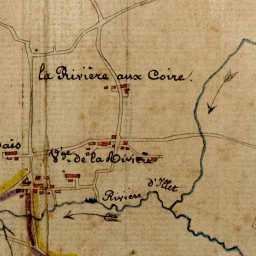 la Rivière aux Coire.
ais
V.ge de la Rivière
Rivière d'Illet